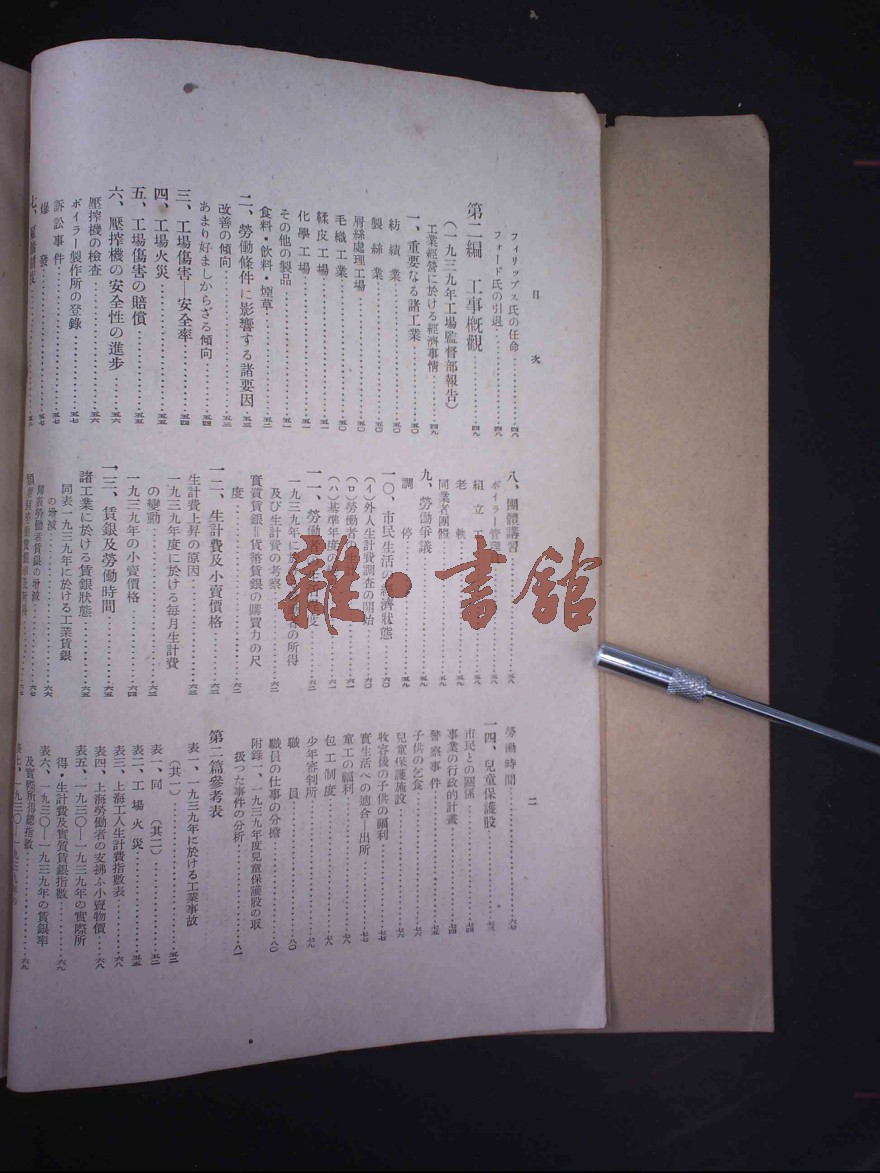 目次
フィリップス氏の任命……四八
フォード氏の引退……四八
第二編 工事概觀……四九
(一九三九年工場監督部報告)
工業經營に於ける經濟事情……四九
一、重要なる諸工業……五〇
紡績業……五〇
製絲業……五〇
屑絲處理工場……五〇
毛織工業……五〇
鞣皮工場……五一
化學工場……五一
その他の製品……五一
食料・飲料・煙草……五二
二、勞働條件に影響する諸要因……五三
改善の傾向……五三
あまり好ましからざる傾向……五四
三、工場傷害—安全率……五四
四、工場火災……五五
五、工場傷害の賠償……五五
六、壓搾機の安全性の進歩……五六
壓搾機の檢査……五六
ボイラー製作所の登錄……五七
訴訟事件……五七
爆發……五七
八、團體講習……五八
ボイラー管理
組立工……五八
老軟……五八
同業者團體……五九
九、勞働爭議……五九
調停……五九
一〇、市民生活の經濟狀態……六〇
(イ)外人生計費調査の開始……六〇
(ロ)勞働者の……六一
(ハ)基準年度の……六一
一一、勞働者の生計程度……六二
一九三九年に於ける勞働者の所得
及び生計費の考察……六二
實質賃銀=貨幣賃銀の購買力の尺
度……六二
一二、生計費及小賣價格……六三
生計費上昇の原因……六三
一九三九年度に於ける每月生計費
の變動……六三
一九三九年の小賣價格……六四
一三、賃銀及勞働時間……六五
諸工業に於ける賃銀狀態……六五
同表一九三九年に於ける工業賃銀
の增減……六六
勞働者賃銀の增減……六七
二
勞働時間……六七
一四、兒童保護股……七三
市民との關係……七四
事業の行政的計畫……七四
警察事件……七五
子供の乞食……七六
兒童保護施設……七六
收容後の子供の福利……七七
實生活への適合—出所……七七
童工の福利……七八
包工制度……七八
少年審判所……七九
職員……八〇
職員の仕事の分擔……八〇
附錄一、一九三九年度兒童保護股の取
扱つた事件の分析……八一
第二篇參考表
表一、一九三九年に於ける工業事故
(其一)……五二
表一、同(其二)……五二
表二、工場火災……五五
表三、上海工人生計費指數表……六八
表四、上海勞働者の支拂ふ小賣物價……六八
表五、一九三〇—一九三九年の實際所
得・生計費及實質賃銀指數……六九
表六、一九三〇—一九三九年の賃銀率
及實際所得總指數……六九
雜·書館